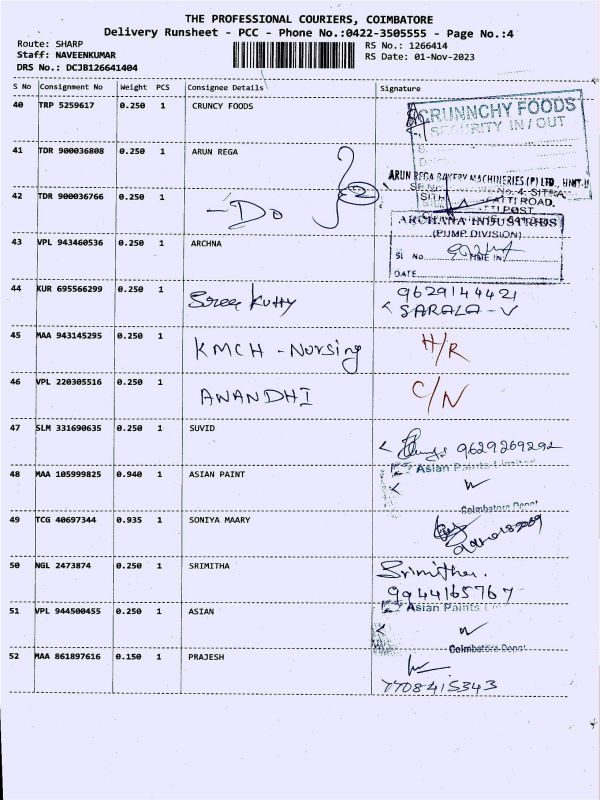 THE PROFESSIONAL COURIERS, COIMBATORE
Delivery Runsheet - PCC - Phone No.:0422-3505555 - Page No.:4
Route: SHARP
Staff: NAVEENKUMAR
DRS No.: DCJB126641404
RS No.: 1266414
RS Date: 01-Nov-2023
S No Consignment No Weight PCS Consignee Details Signature
40 TRP 5259617 0.250 1 CRUNCY FOODS
CRUNNCHY FOODS
SECURITY IN / OUT
41 TDR 900036808 0.250 1 ARUN REGA
ARUN REGA BAKERY MACHINERIES (P) LTD., UNIT-II
42 TDR 900036766 0.250 1 - Do
ARCHANA INDUSTRIES
(PUMP DIVISION)
43 VPL 943460536 0.250 1 ARCHNA
Sl No
DATE
44 KUR 695566299 0.250 1 Sree Kutty 9629144421
SARALA - V
45 MAA 943145295 0.250 1 KMCH - Nursing H/R
46 VPL 220305516 0.250 1 ANANDHI C/N
47 SLM 331690635 0.250 1 SUVID 9629269292
48 MAA 105999825 0.940 1 ASIAN PAINT Asian Paints Limited
Coimbatore Depot
49 TCG 40697344 0.935 1 SONIYA MAARY
50 NGL 2473874 0.250 1 SRIMITHA Srimitha.
9944165767
51 VPL 944500455 0.250 1 ASIAN Asian Paints
Coimbatore Depot
52 MAA 861897616 0.150 1 PRAJESH
7708415343